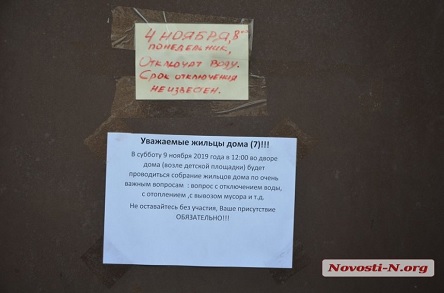 4 НОЯБРЯ, 8⁰⁰
ПОНЕДЕЛЬНИК,
ОТКЛЮЧАТ ВОДУ.
СРОК ОТКЛЮЧЕНИЯ
НЕИЗВЕСТЕН.
Уважаемые жильцы дома (7)!!!
В субботу 9 ноября 2019 года в 12:00 во дворе
дома (возле детской площадки) будет
проводиться собрание жильцов дома по очень
важным вопросам : вопрос с отключением воды,
с отоплением ,с вывозом мусора и т.д.
Не оставайтесь без участия, Ваше присутствие
ОБЯЗАТЕЛЬНО!!!
Novosti-N.org